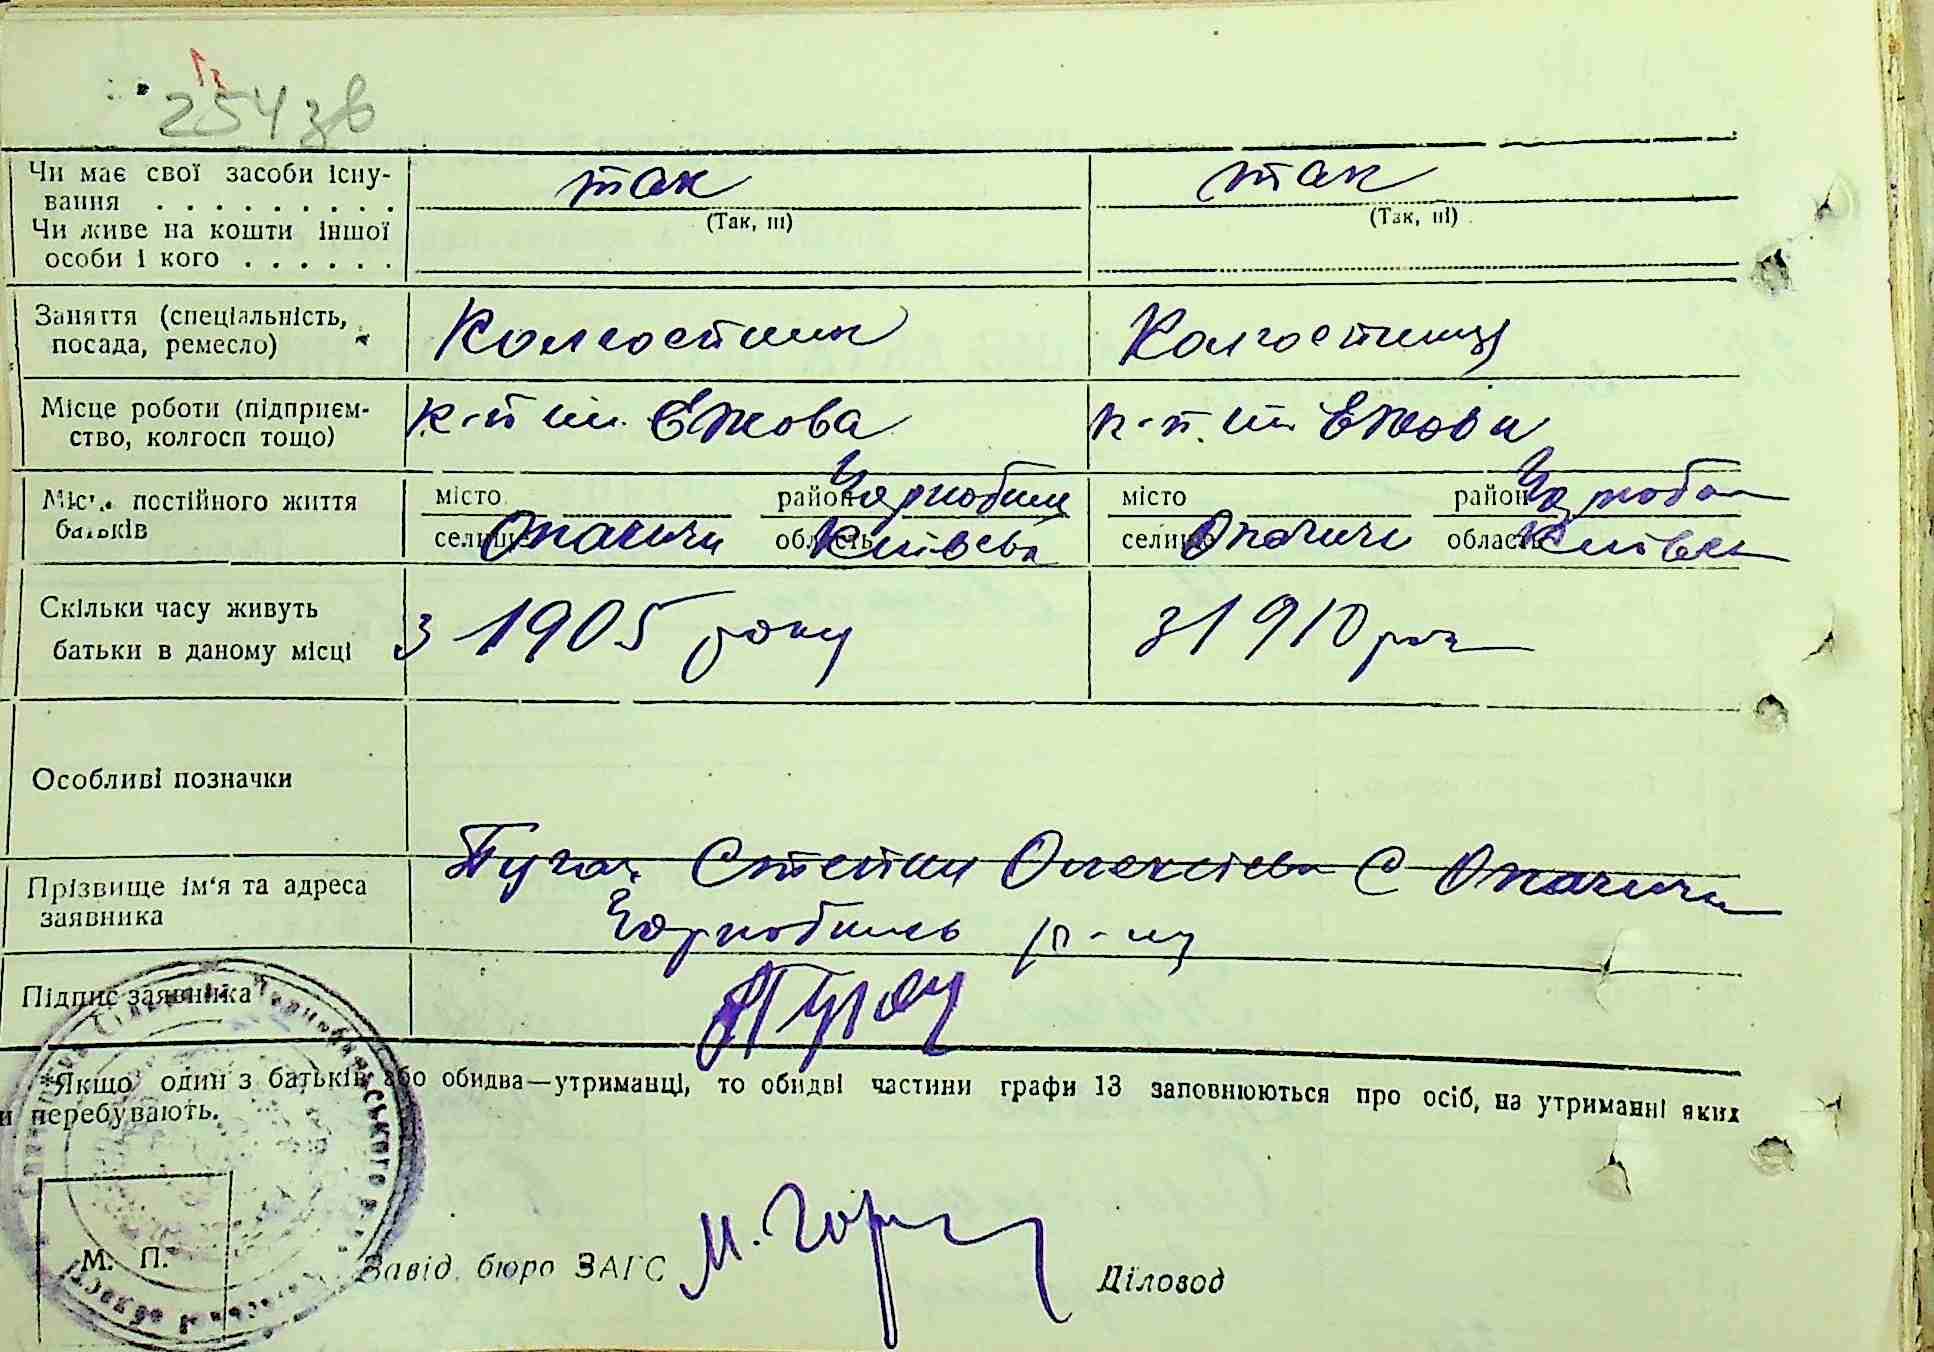 254 зв
Чи має свої засоби існу-
вання . . . . . . . . . так так
(Так, ні) (Так, ні)
Чи живе на кошти іншої
особи і кого . . . . . .
Заняття (спеціальність,
посада, ремесло) Колгоспник Колгоспниця
Місце роботи (підприєм-
ство, колгосп тощо) к-п ім. Ежова к-п. ім Ежова
Місце постійного життя
батьків
місто район Чорнобиль місто район Чорноб
селище Опачичи область Київська селище Опачичи область Київськ
Скільки часу живуть
батьки в даному місці з 1905 року з 1910 рок
Особливі позначки
Прізвище ім'я та адреса
заявника
Пугач Степан Олексієв С Опачичи
Чорнобиль р-ну
Підпис заявника Пугач
Якщо один з батьків або обидва—утриманці, то обидві частини графи 13 заповнюються про осіб, на утриманні яких
и перебувають.
М. П.
Завід. бюро ЗАГС М. Діловод